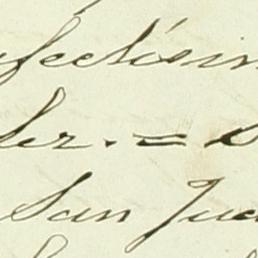 fectísim
der. = S
San Jua